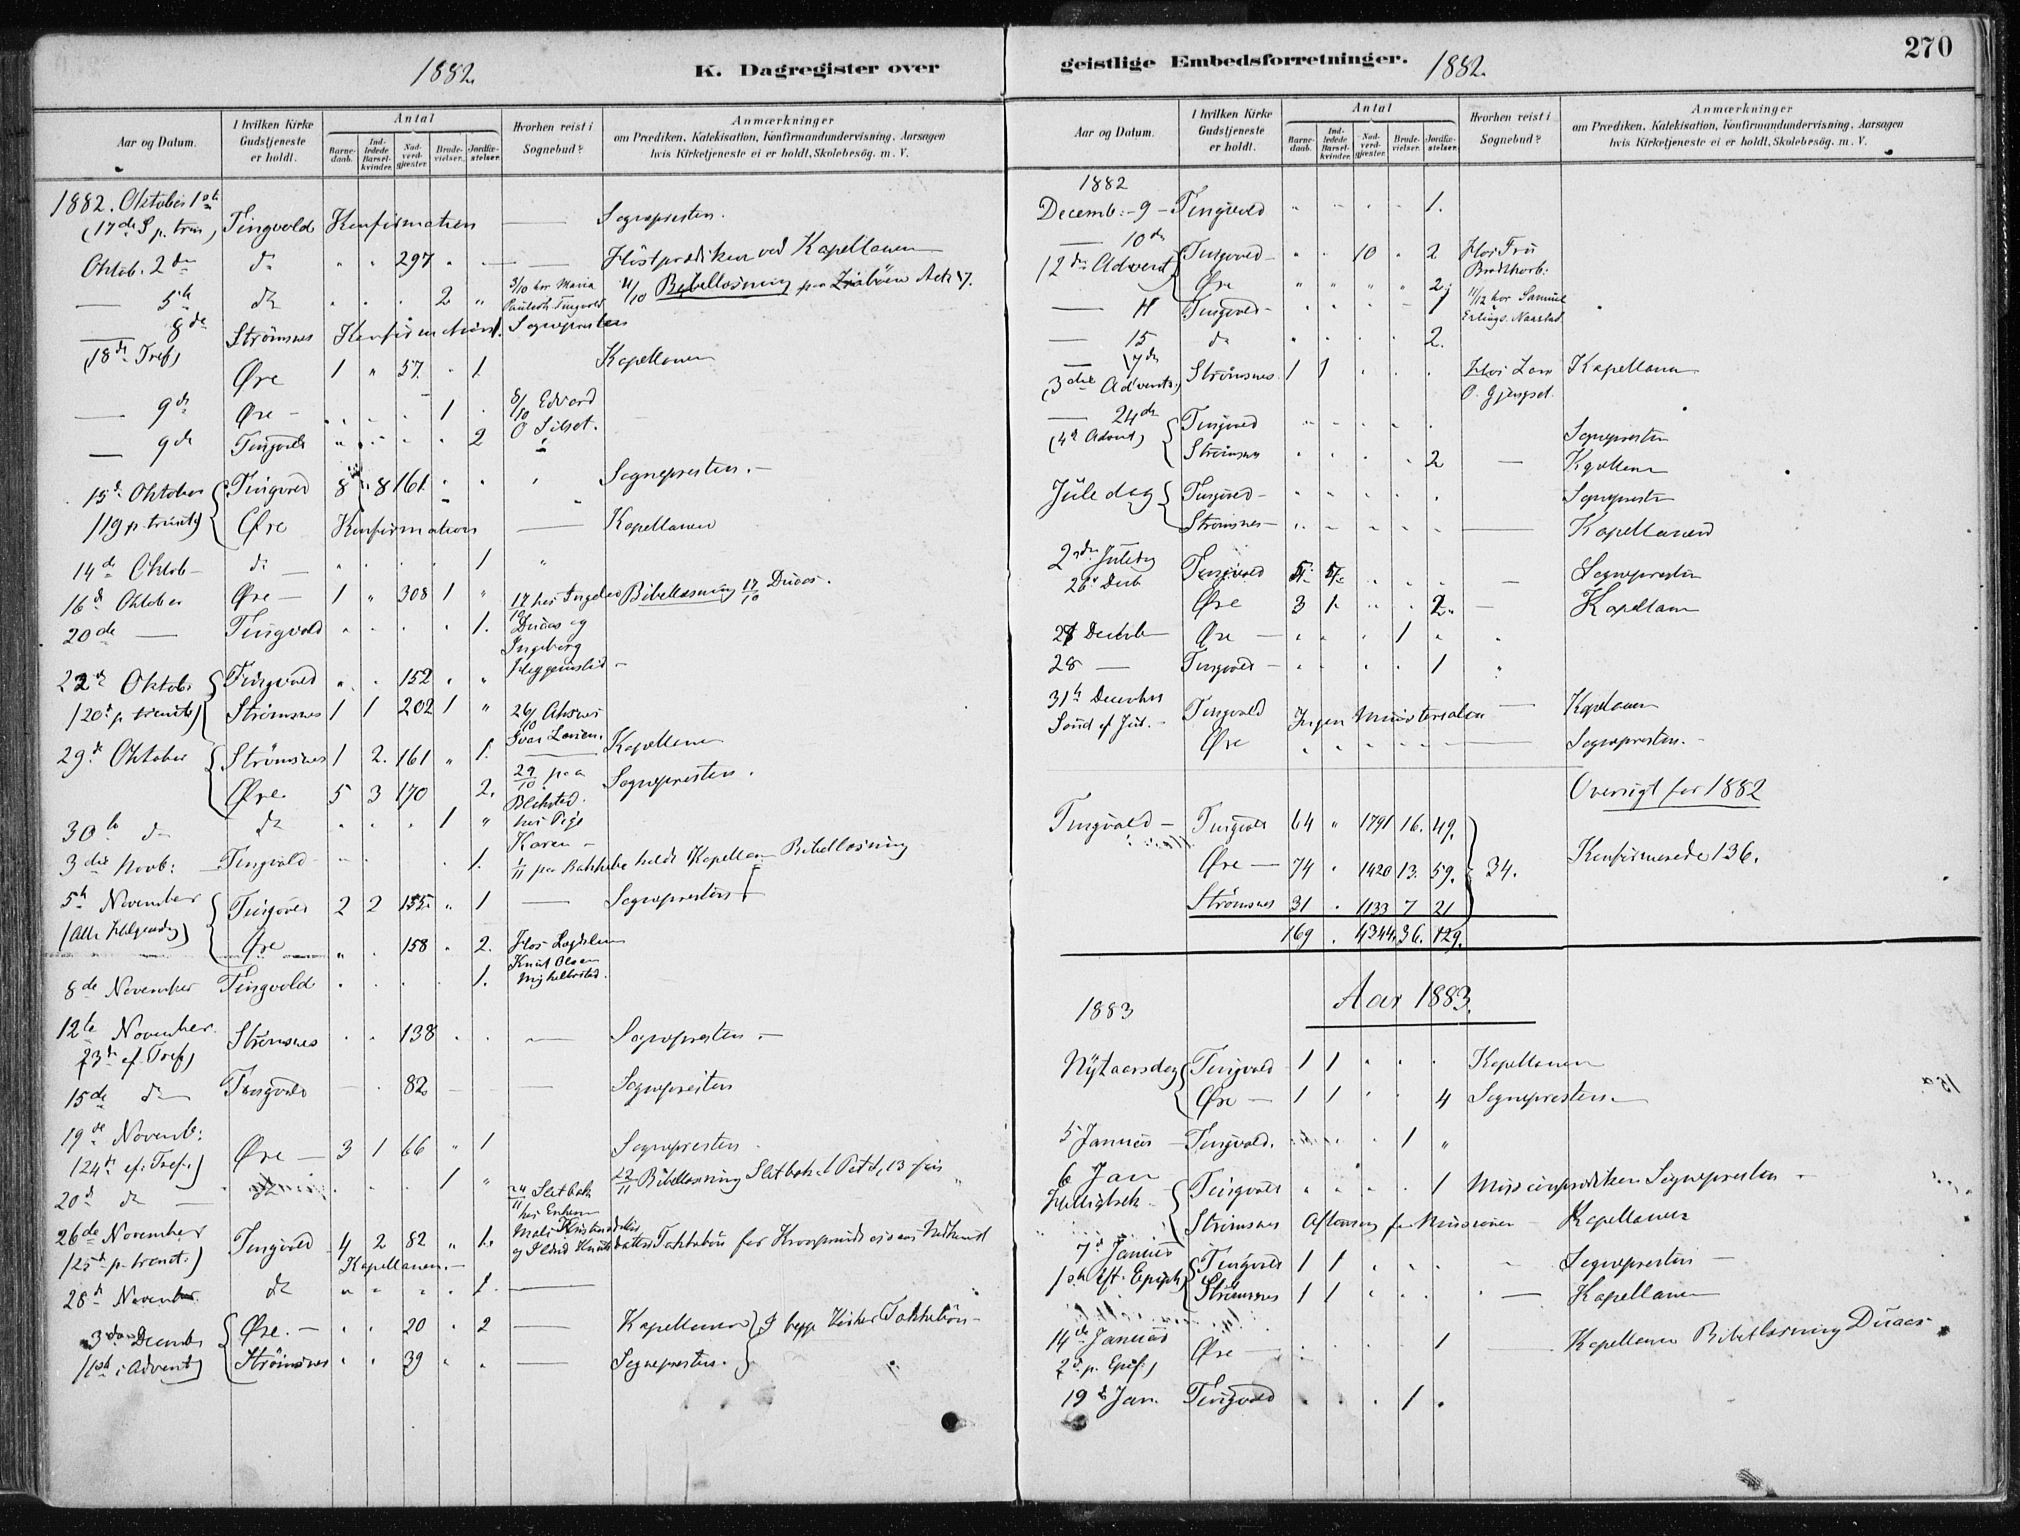 1882.
K. Dagregister over
Aar og Datum.
I hvilken Kirke Gudstjeneste er holdt.
Antal
Barnedaab.
Indledede Barselkvinder.
Nadverdgjester.
Brudevielser.
Jordfæstelser.
Hvorhen reist i Sognebud?
Anmærkninger
om Prædiken, Katekisation, Konfirmandundervisning, Aarsagen
hvis Kirketjeneste ei er holdt, Skolebesög. m. V.
1882. Oktober 1ste
(17de S. p. trin) Tingvold Konfirmation — Sognepresten.
Oktob. 2den do " " 297 " — — Höstprædiken ved Kapellanen
— 5te do " " " 2 " 3/10 hos Maria 4/10 Bibellæsning paa
8de Strömsnes Konfirmation. Sognepresten
(18de Tref)
Øre 1 " 57. " 1. Kapellanen
— 9de Øre — " " " 1 " 8/10 Edvard
— 9de Tingvold " " " " 2 O Silset.
15de Oktober Tingvold 8 8 161. " " " Sognepresten. —
(19 p. trinit) Øre Konfirmation — Kapellanen
14de Oktob — do — " " " " 1 "
16de Oktober Øre — 1 " 308 1 " Bibellæsning 17/10 Duaas.
20de — Tingvold " " " " 1. Duaas og
Ingeborg
22de Oktob Tingvold " " 152 " " Heggemslid —
(20de p. trinit) Strömsnes 1 1 202 1 " 26/10
29de Oktober Strömsnes 1 2. 161 " 1. Kapellanen
Øre 5 3 170 2. 29/10 paa Sognepresten.
30te do do " " " 1 " hos Pige
3die Novb: — Tingvold — " " " 1. Karen —
1/11 paa holdt Kapellan Bibellæsning
5te November Tingvold 2 2 155. " 1 — Sognepresten
(Alle Helgensdg) Øre " " 158 " 2. Hos
Knut Olsen
8de November Tingvold " " " " 1.
12te November. Strömsnes " " 138 " " — Sognepresten. —
23de ef. Tref)
15de do Tingvold — " 82 — — Sognepresten
19de Novemb: Øre — 3 1 66 " 1 Sognepresten
(24de ef. Tref.)
20de do — " " " 1 " 24/11 22/11 Bibellæsning
26de November Tingvold 4 2 82 " 1.
(25de p. trinit.) Kapellanen. —
28de November do " " " " 1. —
3die Decemb Øre. — " " 20 " 2 — Kapellanen I begge Kirker Takkebön —
(1ste i Advent) Strömsnes " " 39 " " — Sognepresten.
geistlige Embedsforretninger.
1882.
270
Aar og Datum.
I hvilken Kirke Gudstjeneste er holdt.
Antal
Barnedaab.
Indledede Barselkvinder.
Nadverdgjester.
Brudevielser.
Jordfæstelser.
Hvorhen reist i Sognebud?
Anmærkninger
om Prædiken, Katekisation, Konfirmandundervisning, Aarsagen
hvis Kirketjeneste ei er holdt, Skolebesög. m. V.
1882
Decemb: — 9 — Tingvold " " " 1.
— 10de Tingvold — " " 10 " 2 Hos Fru
12de Advent Øre " " " " 2
— 11 Tingvold — " " " 1 11/12 hos Samuel
— 15 do " " " " 2.
— 17de Strömsnes 1 1 " " " Hos Lars Kapellanen
(3die Advents.) O. Gjengset.
— 24de Tingvold " " " " Sognepresten
(4de Advent) Strömsnes " " " " 2 — Kapellanen
Juledag Tingvold — " " " " " Sognepresten
Strömsnes — " " " " " — Kapellanen
2den Juledag
26de Decb Tingvold 5. 5. " " " — Sognepresten
Øre 3 1 " " 2 — Kapellan
27 Decbr Øre — " " " 1 "
28 — Tingvold — " " " " 1
31te December Tingvold Ingen Ministerialia — Kapellanen
Sönd ef Jul. — Øre " " " " " — Sognepresten. —
Oversigt for 1882
Tingvold — Tingvold 64 " 1791 16. 49.
Øre — 74 " 1420 13. 59. 34. Konfirmerede 136.
Strömsnes 31 " 1133 7 21
169 . 4344. 36. 129.
1883 Aar 1883.
Nytaarsdag Tingvold 1 1 " " " Kapellanen
Øre — 1 1 " " 4 Sognepresten
5 Januar — Tingvold. " " " 1 "
6 Jan Tingvold " " " " 1 Missionsprædiken Sognepresten —
Strömsnes Aftensang for Missionen — Kapellanen
7de Januar Tingvold 1 1 " " " Sognepresten —
1ste eft. Epiph) Strömsnes 1 1 " " " — Kapellanen
14de Januar Øre — " " " 1 — Kapellanen Bibellæsning Duaas.
2de p. Epif.)
19de Jan. Tingvold " " " 1 "